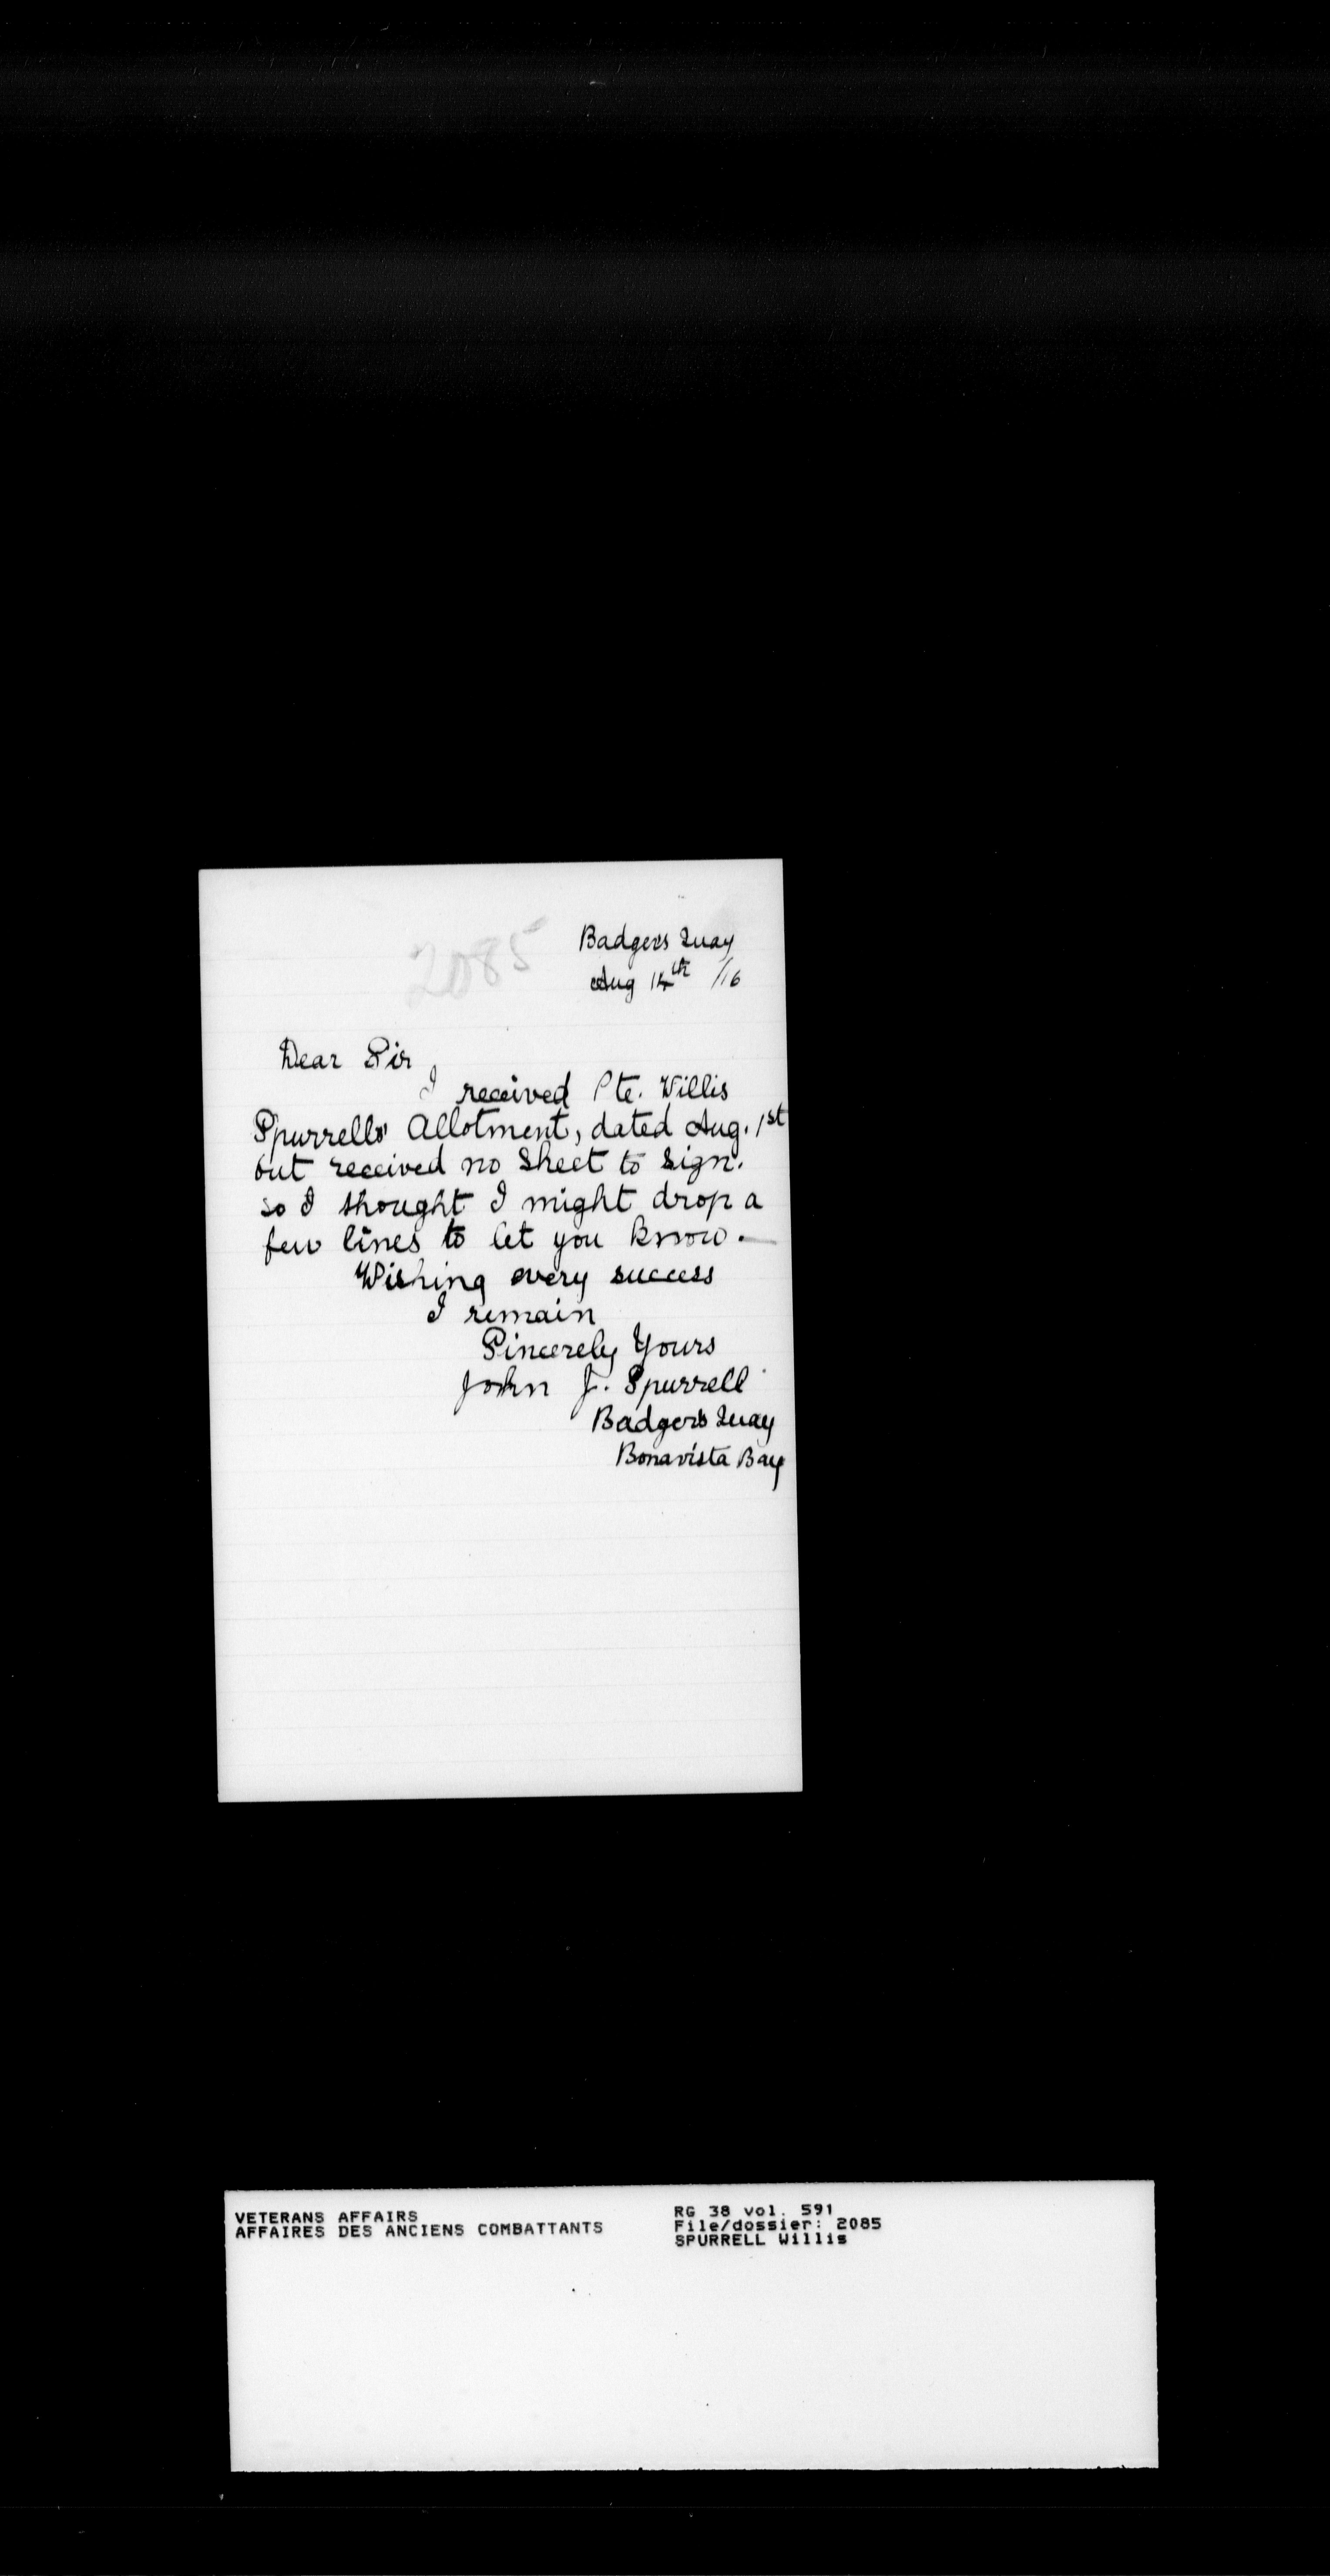 2085
Badgers Quay
Aug 14th /16
Dear Sir,
I received Pte. Willis
Spurrells' Allotment, dated Aug. 1st
but received no Sheet to Sign.
so I thought I might drop a
few lines to let you know. —
Wishing every success
I remain
Sincerely Yours
John J. Spurrell
Badger's Quay
Bonavista Bay
VETERANS AFFAIRS
AFFAIRES DES ANCIENS COMBATTANTS
RG 38 vol. 591
File/dossier: 2085
SPURRELL Willis